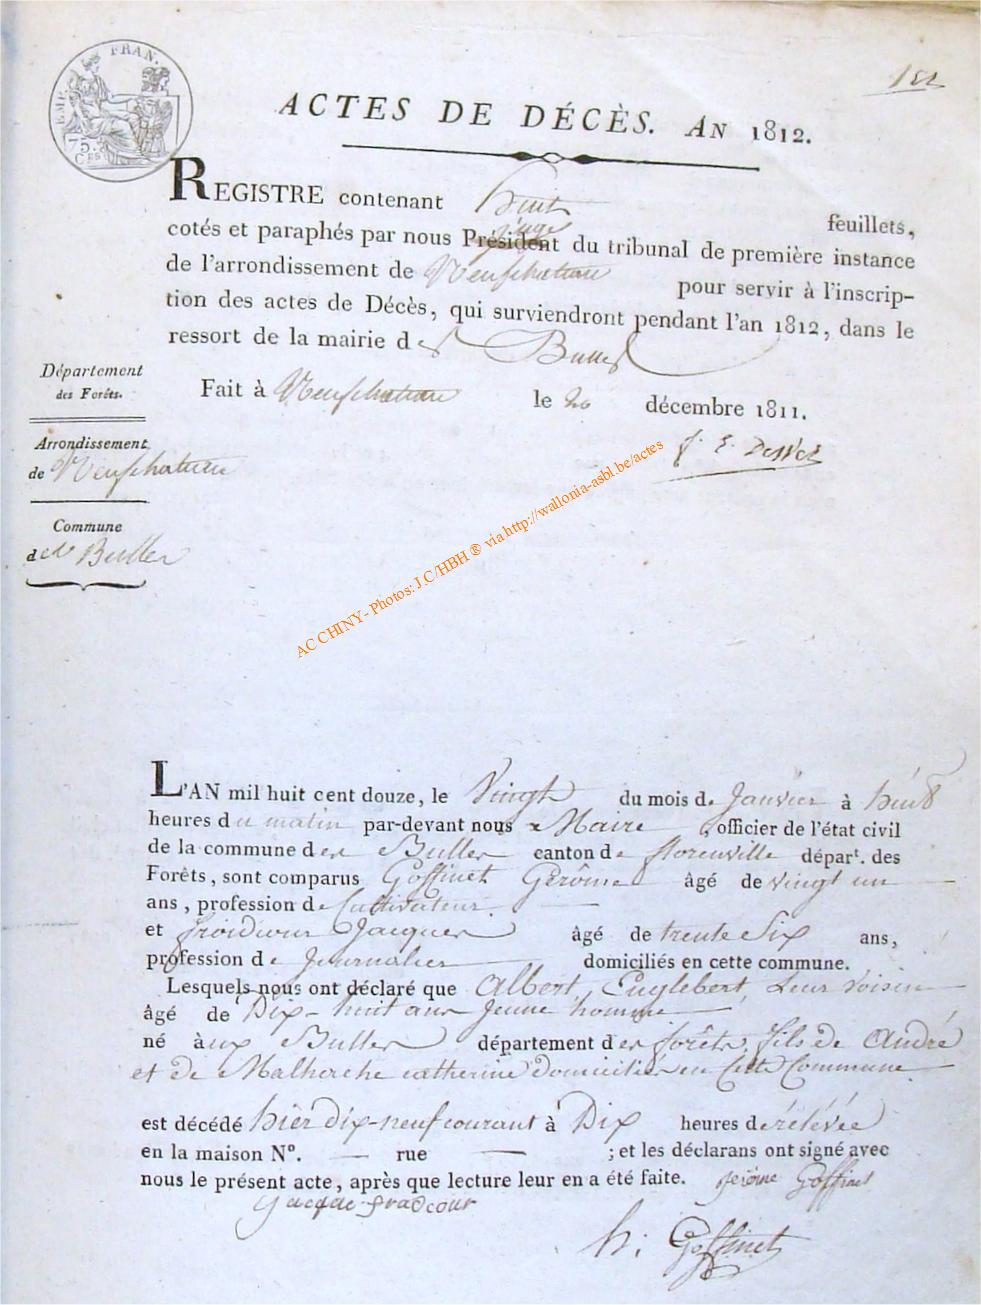 EMP. FRAN.
75.
Ces
1er
ACTES DE DÉCÈS. AN 1812.
REGISTRE contenant huit feuillets,
juge
cotés et paraphés par nous Président du tribunal de première instance
de l'arrondissement de Neufchateau pour servir à l'inscrip-
tion des actes de Décès, qui surviendront pendant l'an 1812, dans le
ressort de la mairie des Bulles
Fait à Neufchateau le 20 décembre 1811.
Département
des Forêts.
Arrondissement
de Neufchateau
Commune
des Bulles
AC CHINY - Photos: J.C/HBH ® via http://wallonia-asbl.be/actes
L'AN mil huit cent douze, le Vingt du mois de Janvier à huit
heures du matin par-devant nous Maire, officier de l'état civil
de la commune des Bulles canton de florenville départ. des
Forêts, sont comparus Goffinet Gérôme âgé de vingt un
ans, profession de Cultivateur
et froidcour Jacques âgé de trente Six ans,
profession de Journalier domiciliés en cette commune.
Lesquels nous ont déclaré que Albert, Englebert, Leur voisin
âgé de Dix-huit ans jeune homme
né aux Bulles département des forêts, fils de André
et de Malherbe catherine domiciliés en Cette Commune
est décédé hier dix-neuf courant à Dix heures de rélévée
en la maison N°. — rue — ; et les déclarans ont signé avec
nous le présent acte, après que lecture leur en a été faite. jerôme Goffinet
Jacque fradcour
h: Goffinet